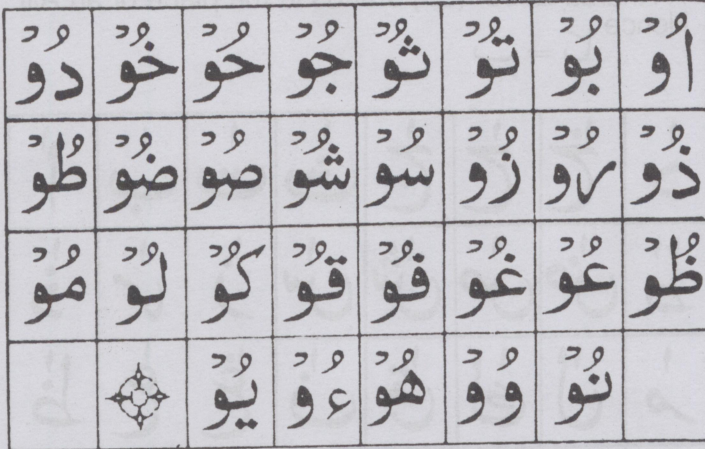 اُوْ بُوْ تُوْ ثُوْ جُوْ حُوْ خُوْ دُوْ
ذُوْ رُوْ زُوْ سُوْ شُوْ صُوْ ضُوْ طُوْ
ظُوْ عُوْ غُوْ فُوْ قُوْ كُوْ لُوْ مُوْ
نُوْ وُوْ هُوْ ءُوْ يُوْ